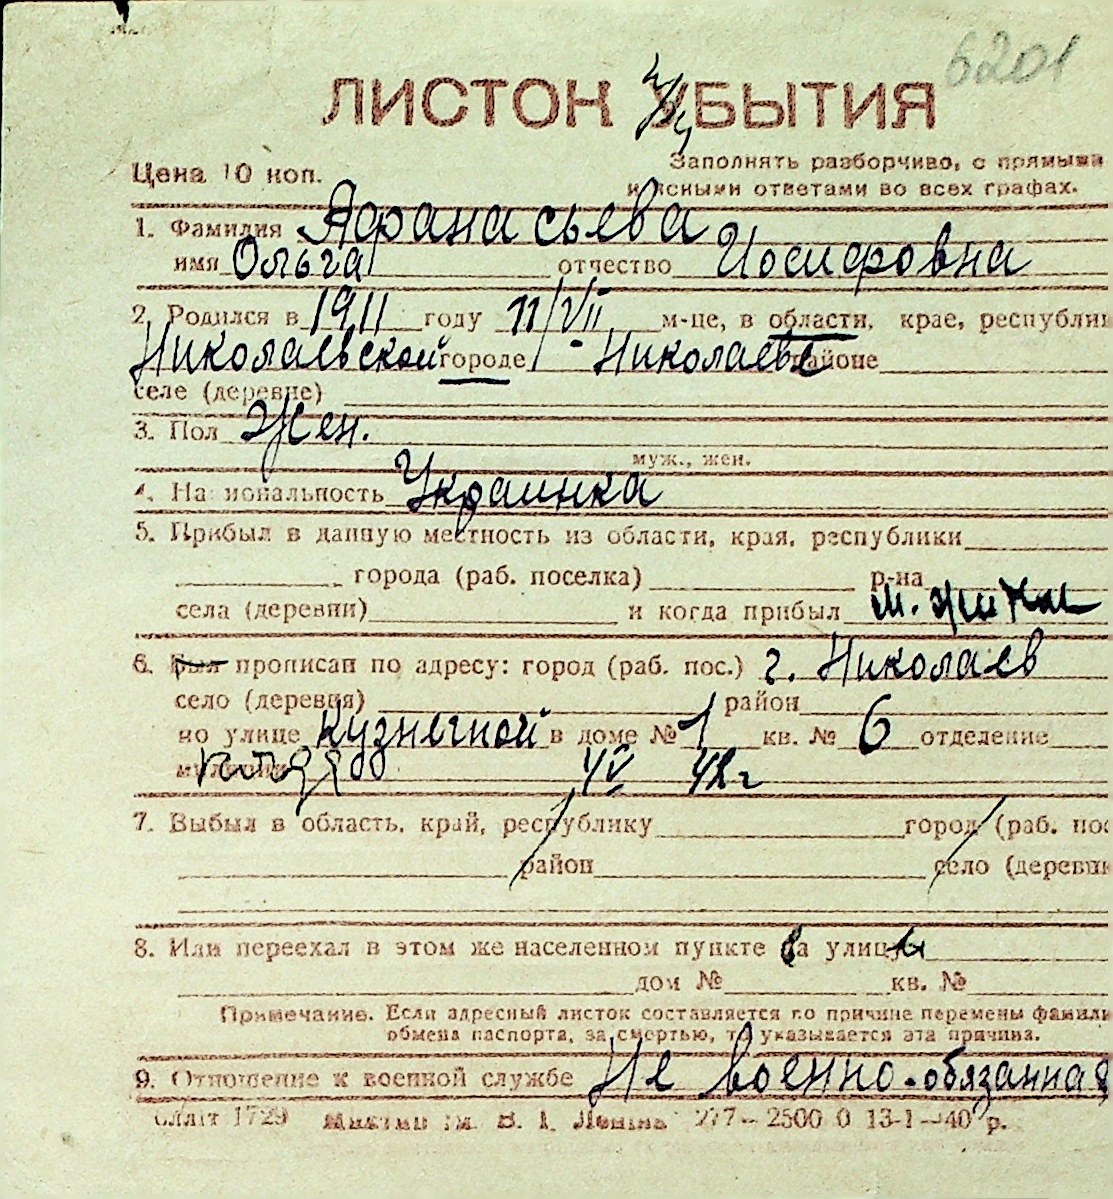 6201
ЛИСТОК УБЫТИЯ
Цена 10 коп.
Заполнять разборчиво, с прямыми
и ясными ответами во всех графах.
1. Фамилия Афанасьева
имя Ольга отчество Иосифовна
2. Родился в 1911 году 11/VII м-це, в области, крае, республик
Николаевской городе Николаеве районе
селе (деревне)
3. Пол Жен.
муж., жен.
4. Национальность Украинка
5. Прибыл в данную местность из области, края, республики
города (раб. поселка) р-на
села (деревни) и когда прибыл м. жит
6. Был прописан по адресу: город (раб. пос.) г. Николаев
село (деревня) район
по улице Кузнечной в доме № 1 кв. № 6 отделение
милиции 48 г
7. Выбыл в область, край, республику город (раб. пос
район село (деревня
8. Или переехал в этом же населенном пункте на улицу
дом № кв. №
Примечание. Если адресный листок составляется по причине перемены фамили
обмена паспорта, за смертью, то указывается эта причина.
9. Отношение к военной службе Не военно-обязанная
1729 им. В. І. Леніна 277—2500 0 13-1—40 р.